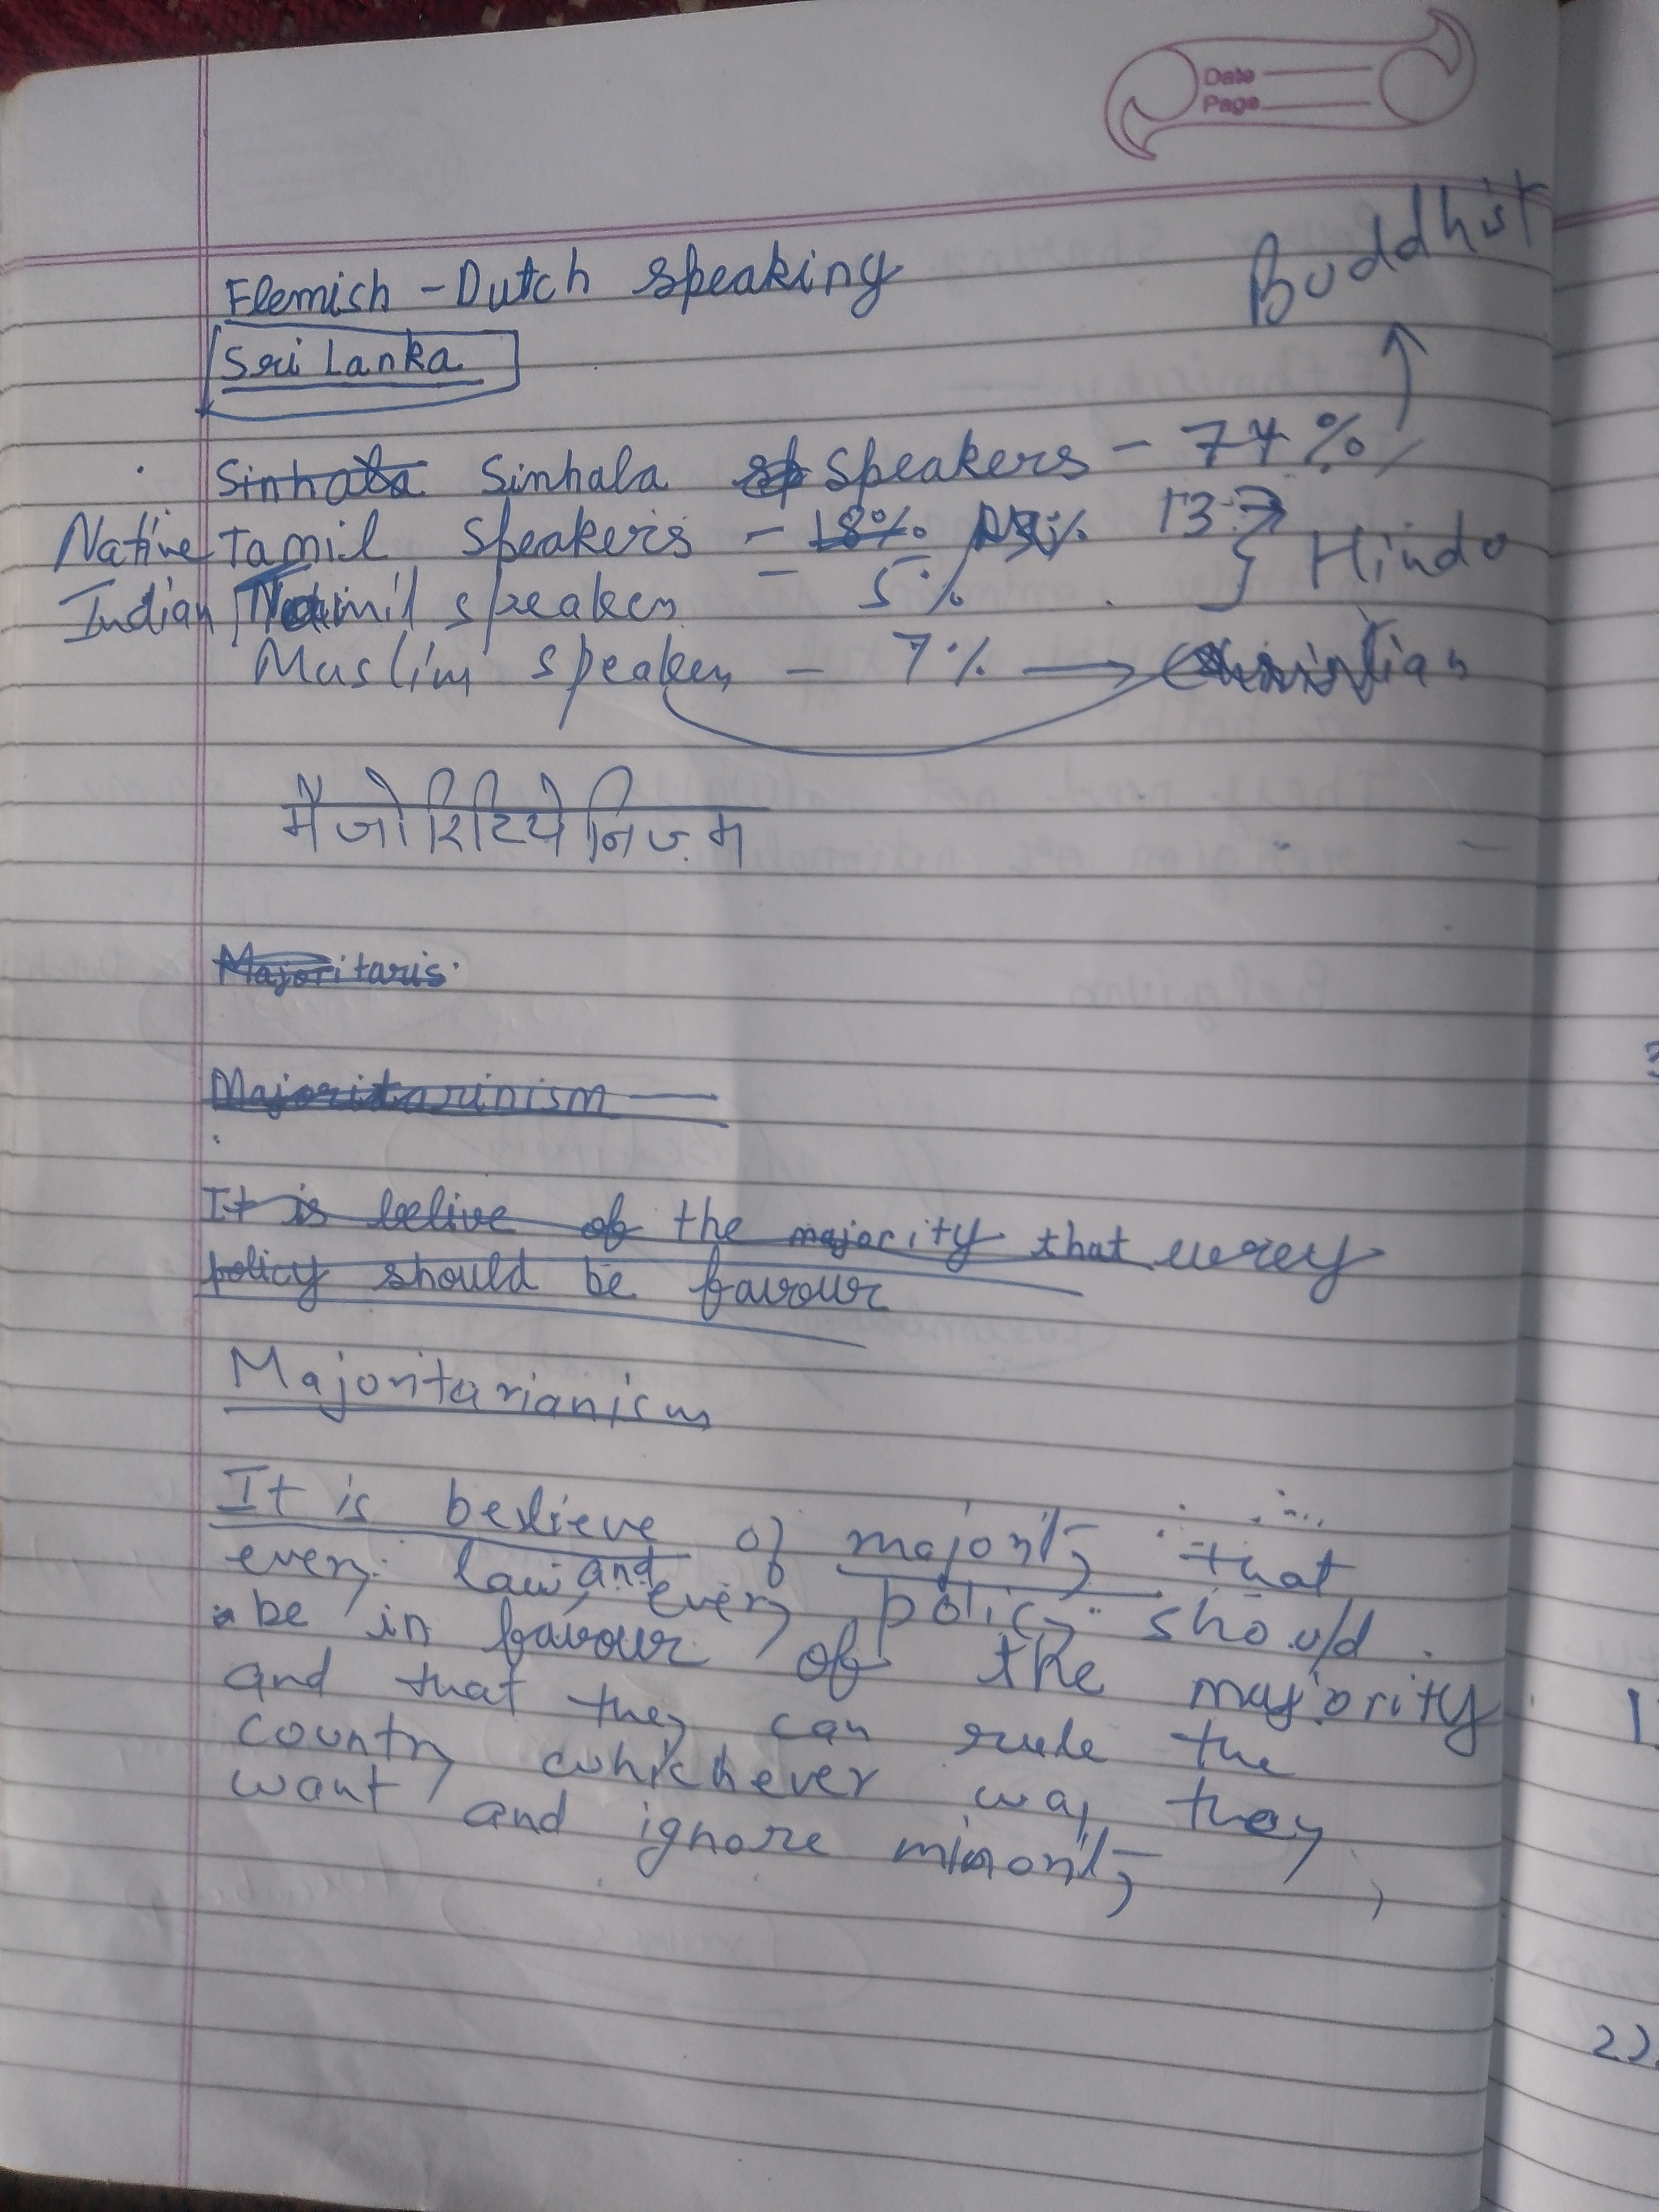 Date
Page
Buddhist
Flemish - Dutch speaking
Sri Lanka
Sinhala Sinhala Speakers - 74%
Native Tamil Speakers - 18% 13%
Indian Tamil speakers - 5% } Hindu
Muslim speakers - 7% →
मैजोरिटियेनिज्म
Majoritaris
Majoritarinism —
It is belive of the majority that every
policy should be favour
Majoritarianism
It is believe of majority that
every law and every policy should
be in favour of the majority
and that they can rule the
country whichever way they
want and ignore minority
22